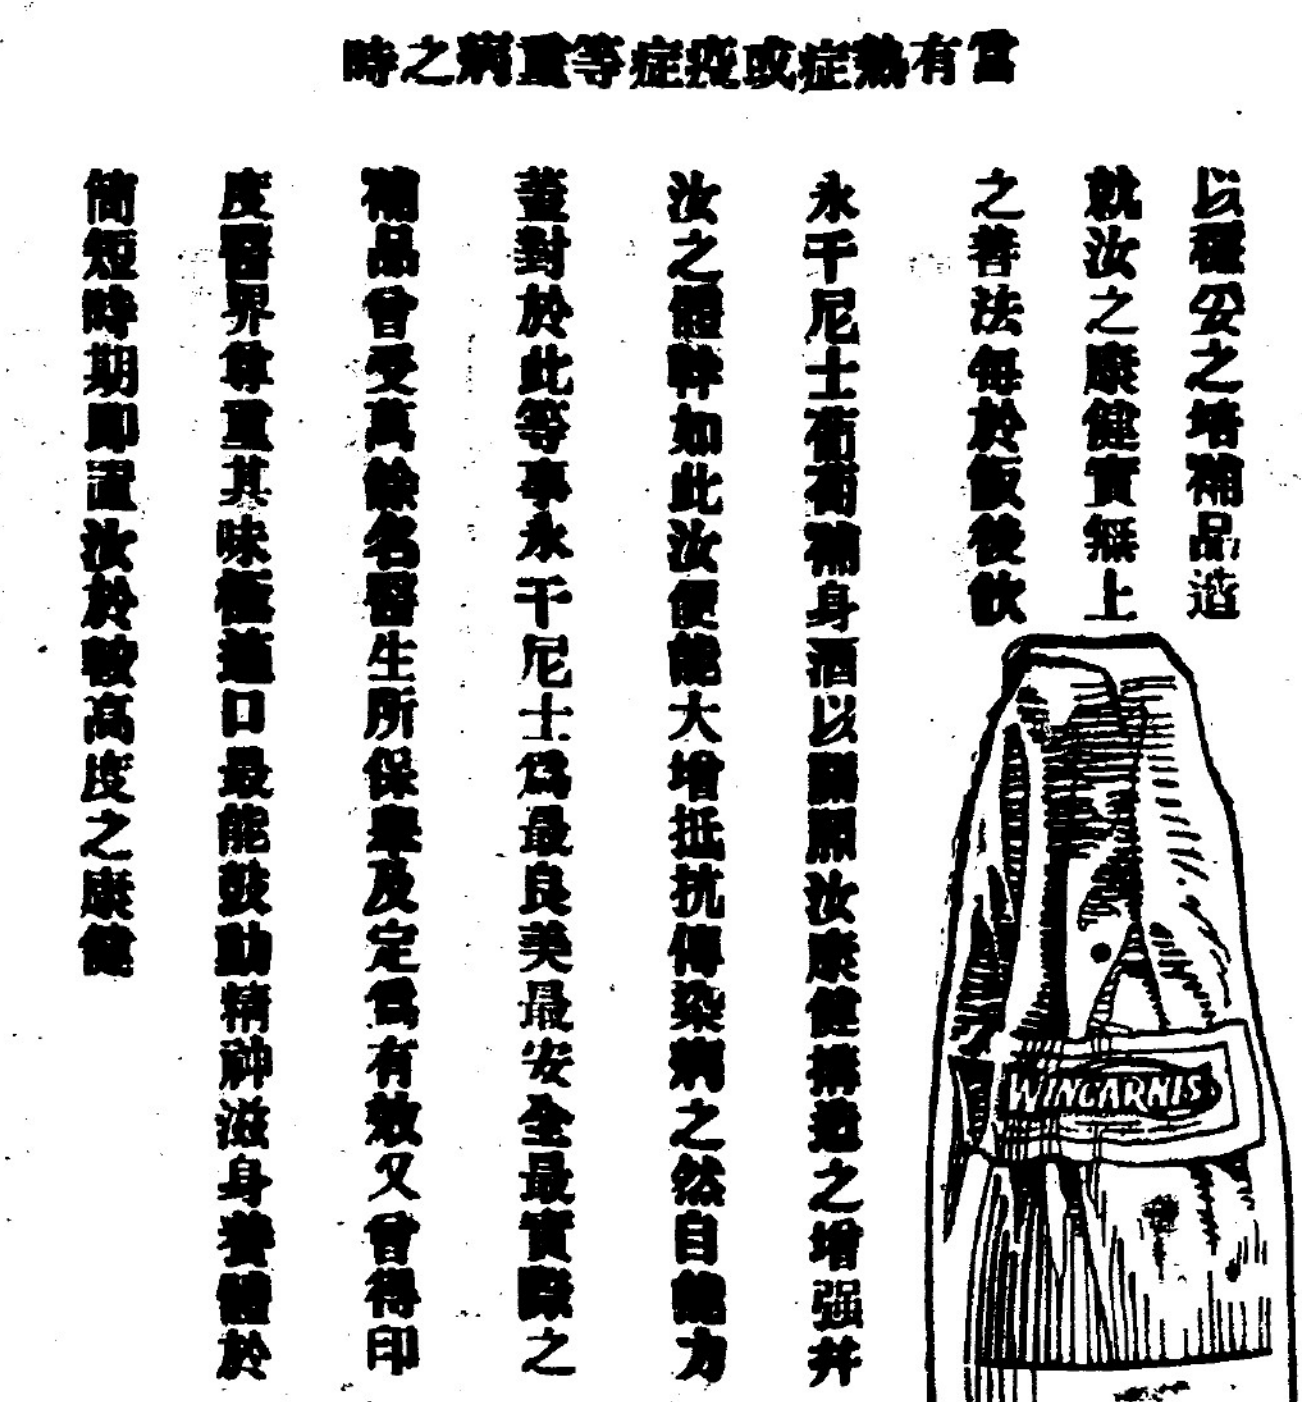 當有熱症或疫症等重病之時
以穩妥之培補品造
就汝之康健實無上
之善法每於飯後飲
永干尼士葡萄補身酒以關照汝康健構造之增强并
汝之體幹如此汝便能大增抵抗傳染病之然自能力
蓋對於此等事永干尼士爲最良美最安全最實際之
補品曾受萬餘名醫生所保舉及定爲有效又曾得印
度醫界尊重其味極適口最能鼓動精神滋身養體於
簡短時期卽置汝於較高度之康健
WINCARNIS